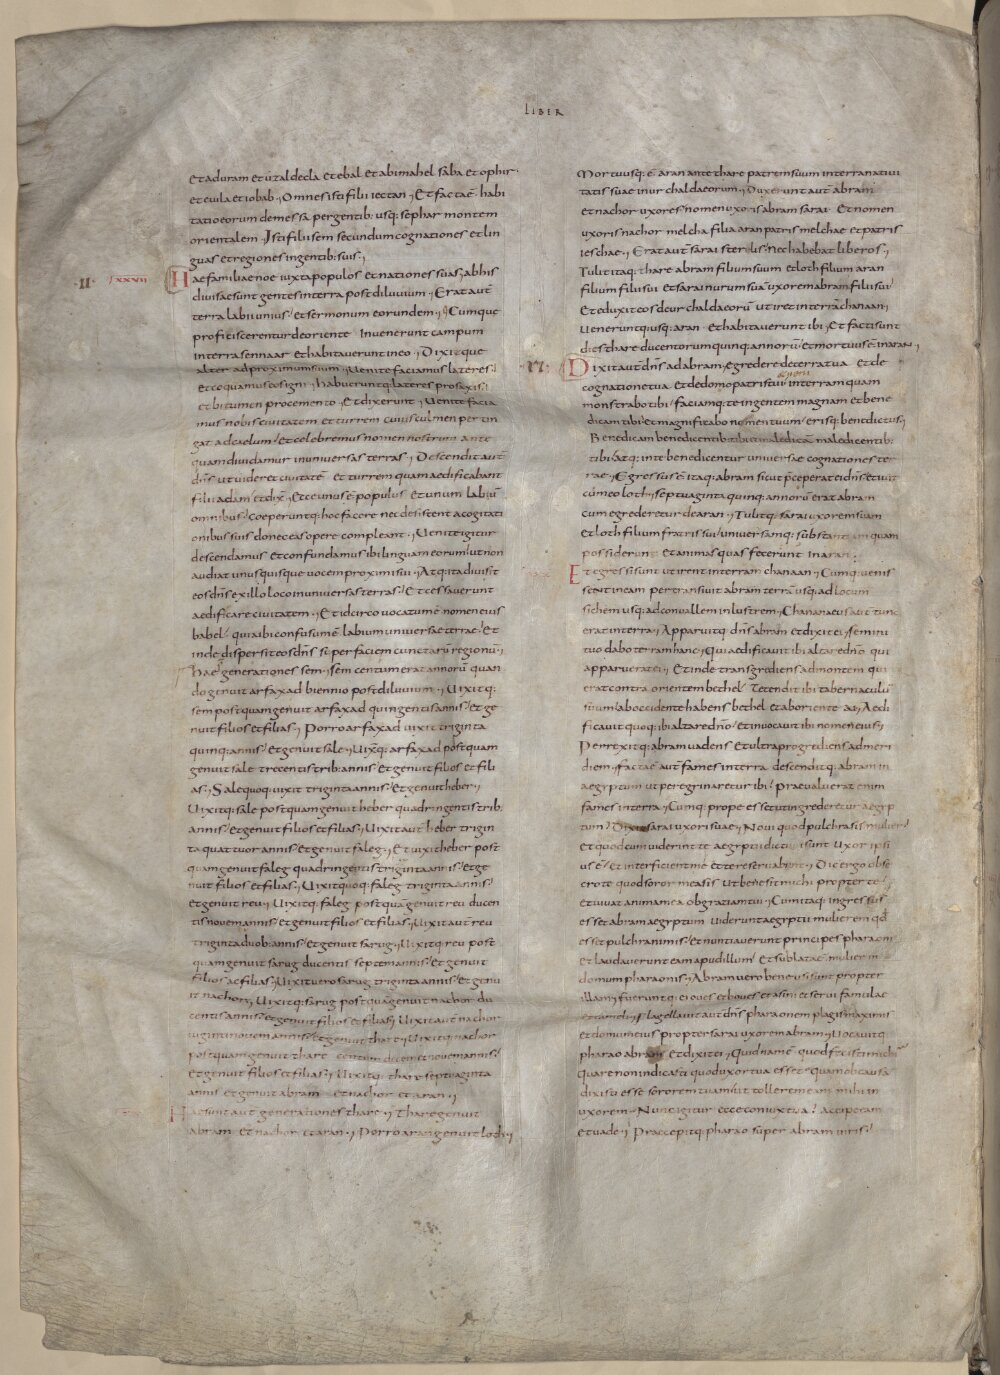 LIBER
et aduram et uzal decla et ebal et abimahel saba et ophir·
et euila et iobab · Omnes isti filii iectan · Et facta ē habi
tatio eorum de messa pergentib; usq; sephar montem
orientalem · Isti filii sem secundum cognationes et lin
guas et regiones in gentib; suis ·
II· LXXVII
Hae familiae noe iuxta populos et nationes suas; ab his
diuisae sunt gentes in terra post diluuium · Erat aut̄
terra labii unius / et sermonum eorundem · Cumque
proficiscerentur de oriente inuenerunt campum
in terra sennaar et habitauerunt in eo · Dixitque
alter ad proximum suum · Uenite faciamus lateres ·
et coquamus eos igni · habueruntq; lateres pro saxis ·
et bitumen pro cemento · Et dixerunt · Uenite facia
mus nobis ciuitatem et turrem cuius culmen pertin
gat ad caelum / et celebremus nomen nostrum ante
quam diuidamur in uniuersas terras · Descendit aut̄
dn̄s ut uideret ciuitatē et turrem quam aedificabant
filii adam et dix̄ · Ecce unus ē populus et unum labiū
omnibus / Coeperuntq; hoc facere nec desistent a cogitati
onibus suis donec eas opere compleant · Uenite igitur
descendamus et confundamus ibi linguam eorum / ut non
audiat unusquisque uocem proximi sui · Atq; ita diuisit
eos dn̄s ex illo loco in uniuersas terras / Et cessauerunt
aedificare ciuitatem · Et idcirco uocatum ē nomen eius
babel / quia ibi confusum ē labium uniuersae terrae / Et
inde dispersit eos dn̄s super faciem cunctarū regionū ·
Hae generationes sem · sem centum erat annorū quan
do genuit arfaxad biennio post diluuium · Uixitq;
sem postquam genuit arfaxad quingentis annis / et ge
nuit filios et filias · Porro arfaxad uixit triginta
quinq; annis / et genuit sale · Uixq; arfaxad postquam
genuit sale trecentis trib; annis / et genuit filios et fili
as · Sale quoq; uixit triginta annis / et genuit heber ·
Uixitq; sale postquam genuit heber quadringentis trib;
annis / et genuit filios et filias · Uixit aut̄ heber trigin
ta quattuor annis et genuit faleg · Et uixit heber post
quam genuit faleg quadringentis triginta annis / et ge
nuit filios et filias · Uixit quoq; faleg triginta annis /
et genuit reu · Uixitq; faleg postquā genuit reu ducen
tis nouem annis / et genuit filios et filias · Uixit aut̄ reu
triginta duob; annis / et genuit sarug · Uixitq; reu post
quam genuit sarug ducentis septem annis / et genuit
filios ac filias · Uixit uero sarug triginta annis / et genu
it nachor · Uixitq; sarug postquā genuit nachor du
centis annis / et genuit filios et filias · Uixit aut̄ nachor
uiginti nouem annis / et genuit thare · Uixitq; nachor
postquam genuit thare centum decem et nouem annis /
et genuit filios et filias · Uixitq; thare septuaginta
annis et genuit abram et nachor et aran ·
Hae sunt aut̄ generationes thare · Thare genuit
abram et nachor et aran · Porro aran genuit loth ·
Mortuusq; ē aran ante thare patrem suum in terra natiui
tatis suae in ur chaldaeorum · Duxerunt aut̄ abram
et nachor uxores / nomen uxoris abram sarai Et nomen
uxoris nachor melcha filia aran patris melchae et patris
ieschae · Erat aut̄ sarai sterilis / nec habebat liberos ·
Tulit itaq; thare abram filium suum et loth filium aran
filium filii sui et sarai nurum suā uxorem abram filii sui /
Et eduxit eos de ur chaldaeorū ut iret in terrā chanaan ·
Ueneruntq; usq; aran et habitauerunt ibi · Et facti sunt
dies thare ducentorum quinq; annorū / et mortuus ē in aran ·
Dixit aut̄ dn̄s ad abram / egredere de terra tua Et de
cognatione tua Et de domo patris tui in terram quam
monstrabo tibi / faciamq; te in gentem magnam et bene
dicam tibi / et magnificabo nomen tuum / erisq; benedictus ·
Benedicam benedicentib; tibi et maledicā maledicentib;
tibi / atq; in te benedicentur uniuersae cognationes ter
rae · Egressus ē itaq; abram sicut p̄ceperat ei dn̄s et iuit
cū meo loth · septuaginta quinq; annorū erat abram
cum egrederetur de aran · Tulitq; sarai uxorem suam
et loth filium fratris sui / uniuersamq; substantiam quam
possiderunt et animas quas fecerunt in aran ·
Et egressi sunt ut irent in terram chanaan · Cumq; uenis
sent in eam pertransiuit abram terrā usq; ad locum
sichem usq; ad conuallem inlustrem · Chananaeus aut̄ tunc
erat in terra · Apparuitq; dn̄s abram et dixit ei · semini
tuo dabo terram hanc · Qui aedificauit ibi altare dn̄o qui
apparuerat ei · Et inde transgrediens ad montem qui
erat contra orientem bethel / Tetendit ibi tabernaculū
suum / ab occidente habens bethel et ab oriente ai · Aedi
ficauit quoq; ibi altare dn̄o / et inuocauit ibi nomen eius ·
Perrexitq; abram uadens et ultra progrediens ad meri
diem · facta ē aut̄ fames in terra descenditq; abram in
aegyptum ut peregrinaretur ibi / Praeualuerat enim
fames in terra · Cumq; prope esset ut ingrederetur aegyp
tum / Dixit sarai uxori suae · Noui quod pulchra sis mulier
et quod cum uiderint te aegyptii dicturi sunt uxor ipsi
us ē / et interficient me et te reseruabunt · Dic ergo obse
cro te quod soror mea sis / Ut bene sit michi propter te /
et uiuat anima mea ob gratiam tui · Cum itaq; ingressus
esset abram aegyptum uiderunt aegyptii mulierem qd̄
esset pulchra nimis / et nuntiauerunt principes pharaoni
et laudauerunt eam apud illum / Et sublata ē mulier in
domum pharaonis · Abram uero bene usi sunt propter
illam · fueruntq; ei oues et boues et asini et serui famulae
et cameli · flagellauit aut̄ dn̄s pharaonem plagis maximis
et domum eius propter sarai uxorem abram · Uocauitq;
pharao abram et dixit ei · Quid nam ē quod fecisti michi
Quare non indicasti quod uxor tua esset · Quam ob causā
dixisti esse sororem tuam / ut tollerem eam mihi in
uxorem · Nunc igitur ecce coniux tua / accipe eam
et uade · Praecepitq; pharao super abram uiris /